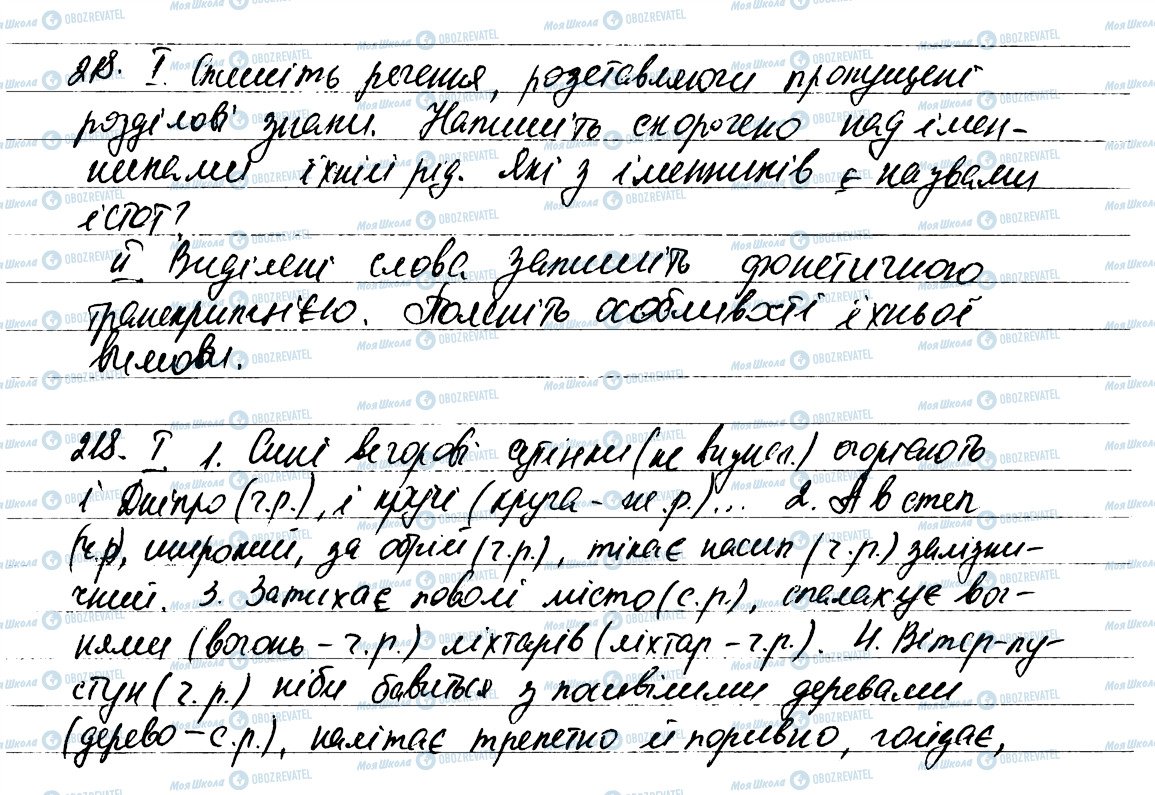 218. І. Спишіть речення, розставляючи пропущені
розділові знаки. Напишіть скорочено над імен-
никами їхній рід. Які з іменників є назвами
істот?
ІІ Виділені слова запишіть фонетичною
транскрипцією. Поясніть особливості їхньої
вимови.
218. І 1. Сині вечорові сутінки (не визнач.) огортають
і Дніпро (ч.р.), і кручі (круча – ж.р.)... 2. А в степ
(ч.р), широкий, за обрій (ч.р.), тікає насип (ч.р.) залізни-
чний. 3. Затихає поволі місто (с.р.), спалахує вог-
нями (вогонь – ч.р.) ліхтарів (ліхтар – ч.р.). 4. Вітер-пу-
стун (ч.р.) ніби бавиться з посивілими деревами
(дерево – с.р.), налітає трепетно й поривно, гойдає,